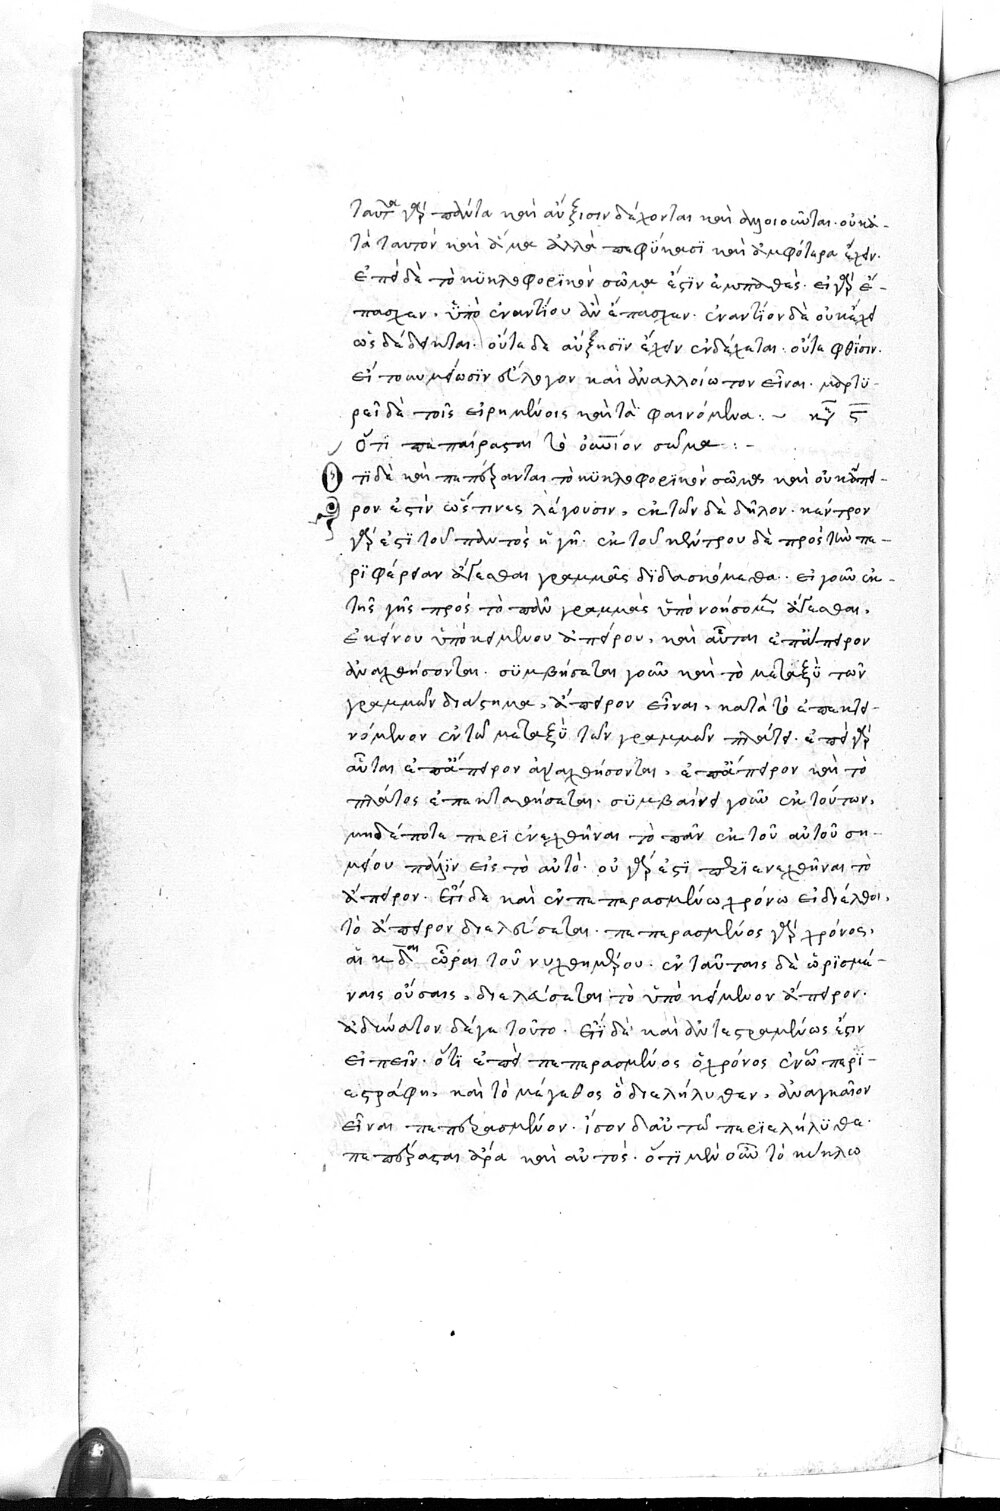 ταῦτα γὰρ πάντα καὶ αὔξησιν δέχονται καὶ ἀλλοιοῦνται· οὐ κα-
τὰ ταυτὸν καὶ ἅμα ἀλλὰ πεφύκασι καὶ ἀμφότερα ἔχειν·
ἐπεὶ δὲ τὸ κυκλοφορικὸν σῶμα ἐστὶν ἀπαθές· εἰ γὰρ ἔ-
πασχεν, ὑπὸ ἐναντίου ἂν ἔπασχεν· ἐναντίον δὲ οὐκ ἔχει
ὡς δέδεικται· οὔτε δὲ αὔξησιν ἔχειν ἐνδέχεται· οὔτε φθίσιν·
εἴτουν μείωσιν λέγον καὶ ἀναλλοίωτον εἶναι· μαρτυ-
ρεῖ δὲ τοῖς εἰρημένοις καὶ τὰ φαινόμενα :~ ς
Ὅτι πεπέρασται τὸ οὐράνιον σῶμα :-
Ὅτι δὲ καὶ πεπέρανται τὸ κυκλοφορικὸν σῶμα καὶ οὐκ ἄπει-
ρον ἐστὶν ὥς τινες λέγουσιν, ἐκ τῶν δὲ δῆλον· κέντρον
γάρ ἐστι τοῦ παντὸς ἡ γῆ· ἐκ τοῦ κέντρου δὲ πρὸς τὴν πε-
ριφέρειαν ἄγεσθαι γραμμὰς διδασκόμεθα· εἰ γοῦν ἐκ
τῆς γῆς πρὸς τὸ πᾶν γραμμὰς ὑπονοήσομεν ἄγεσθαι,
ἐκείνου ὑποκειμένου ἀπείρου, καὶ αὗται ἐπάπειρον
ἀναχθήσονται· συμβήσεται γοῦν καὶ τὸ μεταξὺ τῶν
γραμμῶν διάστημα, ἄπειρον εἶναι, κατὰ τὸ ἐπεκτει-
νόμενον ἐν τῷ μεταξὺ τῶν γραμμῶν πλάτει· ἐπεὶ γὰρ
αὗται ἐπάπειρον ἀναχθήσονται, ἐπάπειρον καὶ τὸ
πλάτος ἐπεκταθήσεται· συμβαίνει γοῦν ἐκ τούτων,
μηδέποτε περιενεχθῆναι τὸ πᾶν ἐκ τοῦ αὐτοῦ ση-
μείου πάλιν εἰς τὸ αὐτό· οὐ γάρ ἐστι περιενεχθῆναι τὸ
ἄπειρον· Εἰ δὲ καὶ ἐν πεπερασμένῳ χρόνῳ εἰ διέλθοι,
τὸ ἄπειρον διελεύσεται· πεπερασμένος γὰρ χρόνος,
αἱ κδ ὧραι τοῦ νυχθημέρου· ἐν ταύταις δὲ ὡρισμέ-
ναις οὔσαις, διελεύσεται τὸ ὑποκείμενον ἄπειρον·
ἀδύνατον δέ γε τοῦτο· Εἰ δὲ καὶ ἀντεστραμμένως ἔστιν
εἰπεῖν· ὅτι ἐπεὶ πεπερασμένος ὁ χρόνος ἐν ᾧ περι-
εστράφη, καὶ τὸ μέγεθος ὃ διελήλυθεν, ἀναγκαῖον
εἶναι πεπερασμένον· ἴσον δ' αὐτῷ περιελήλυθε·
πεπέρασται ἄρα καὶ αὐτός· ὅτι μὲν οὖν τὸ κύκλῳ